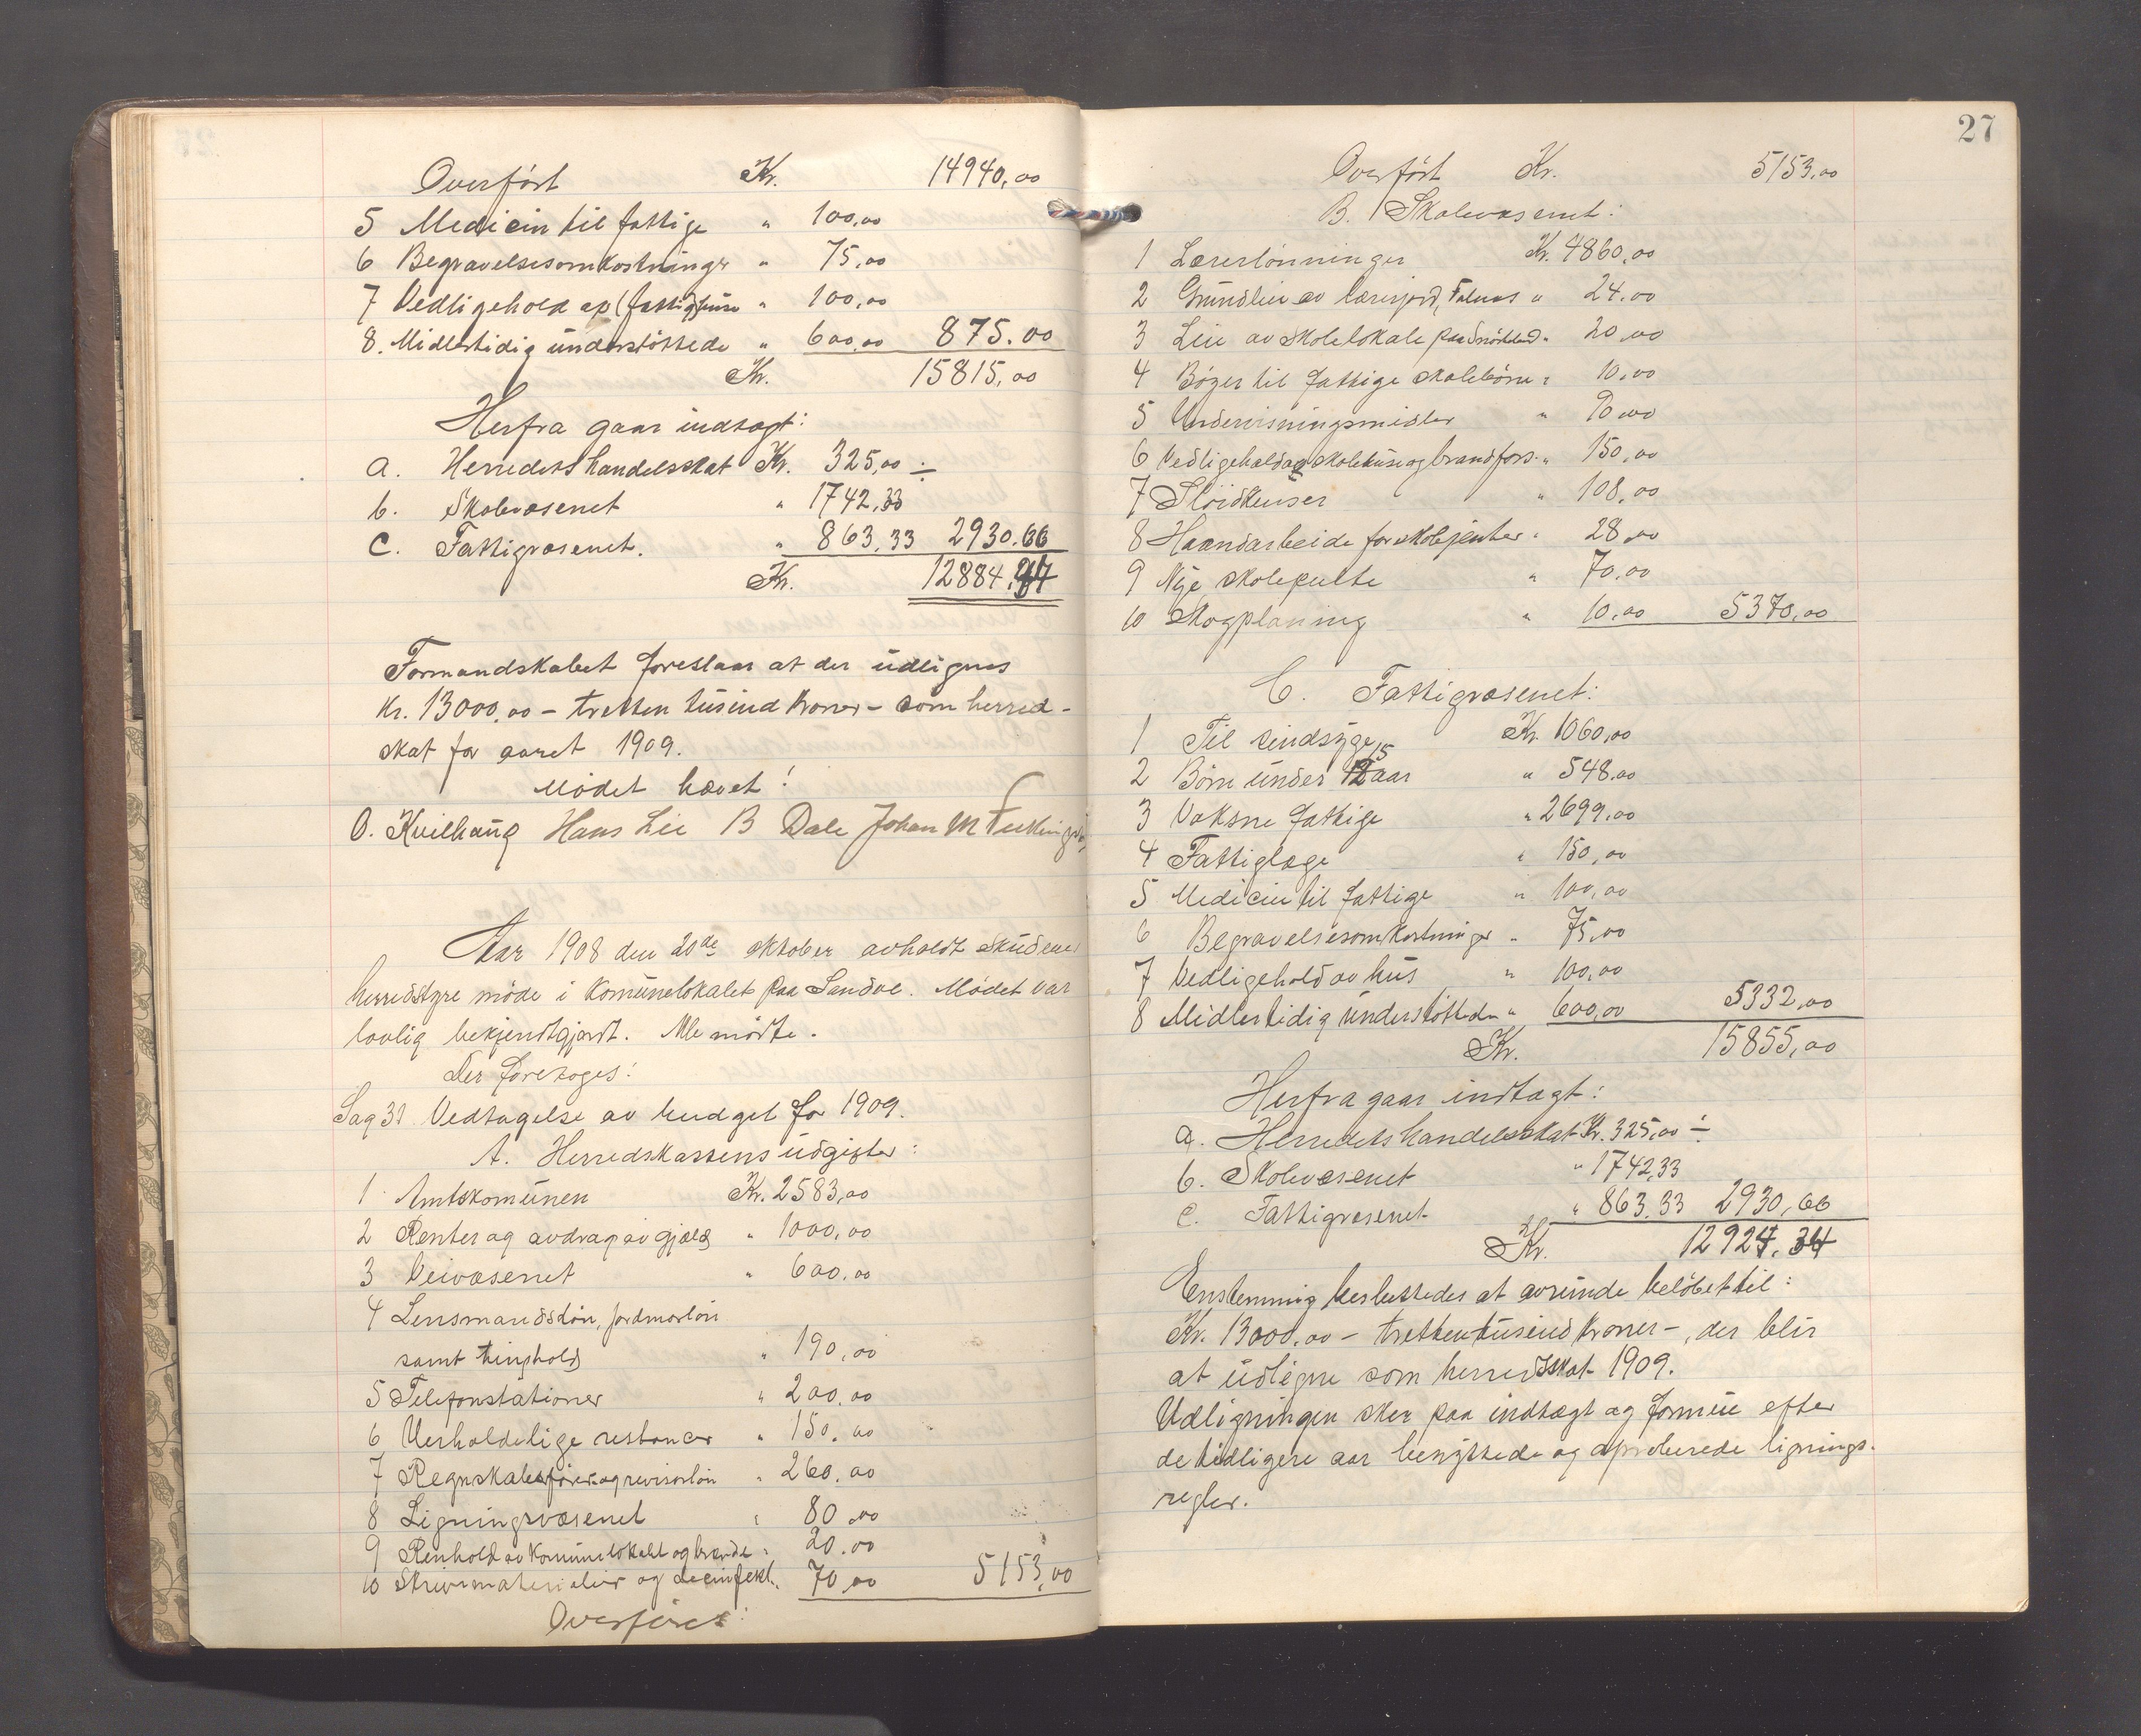 Overført Kr. 14940,00
5 Medicin til fattige " 100,00
6 Begravelsesomkostninger " 75,00
7 Vedligehold av fattighuse " 100,00
8. Midlertidig understøttede " 600,00 875.00
Kr. 15815,00
Herfra gaar indtægt:
a. Herredets handelsskat Kr. 325,00 ÷
b. Skolevæsenet " 1742,33
c. Fattigvæsenet. " 863,33 2930.66
Kr. 12884.
Formandskabet foreslaar at der udlignes
Kr. 13000,00 – tretten tusind kroner – som herred-
skat for aaret 1909.
Mødet hævet!
O. Kvilhaug Hans Lie B Dale Johan M
Aar 1908 den 20de oktober avholdt Skudenes
herredstyre møde i komunelokalet paa Sandve. Mødet var
lovlig bekjendtgjort. Alle mødte.
Der foretoges:
Sag 31 Vedtagelse av budget for 1909.
A. Herredskassens udgifter:
1 Amtskomunen Kr. 2583,00
2 Renter og avdrag av gjæld " 1000,00
3 Veivæsenet " 600,00
4 Lensmandsløn, jordmorløn
samt tinghold " 190,00
5 Telefonstationer " 200,00
6 Uerholdelige restancer " 150,00
7 Regnskabsfører og revisorløn " 260,00
8 Ligningsvæsenet " 80,00
9 Renhold av komunelokalet og brænde " 20.00
10 Skrivematerialier og desinfekt. " 70,00 5153,00
Overføres:
27
Overført Kr. 5153,00
B. Skolevæsenet:
1 Lærerlønninger Kr. 4860,00
2 Grundleie av lærerjord, Falnes " 24.00
3 Leie av skolelokale paa " 20,00
4 Bøger til fattige skolebørn " 10,00
5 Undervisningsmidler "
6 Vedligehold av skolehuse og brandfors. " 150,00
7 Sløidkurser " 108,00
8 Haandarbeide for skolepenter " 28,00
9 Nye skolepulte " 70,00
10 Skogplanting " 10,00 5370,00
C. Fattigvæsenet:
1 Til sindsyge Kr. 1060,00
2 Børn under 15 aar " 548.00
3 Voksne fattige " 2699,00
4 Fattiglæge " 150,00
5 Medicin til fattige " 100,00
6 Begravelsesomkostninger " 75,00
7 Vedligehold av hus " 100,00
8 Midlertidig understøttede " 600,00 5332,00
Kr. 15855,00
Herfra gaar indtægt:
a. Herredets handelsskat Kr. 325,00 ÷
b. Skolevæsenet " 1742,33
c. Fattigvæsenet " 863,33 2930,66
Kr. 12924.34
Enstemmig besluttedes at avrunde beløbet til:
Kr. 13000,00 – tretten tusind kroner –, der blir
at udligne som herredsskat 1909.
Udligningen sker paa indtægt og formue efter
de tidligere aar benyttede og aproberede lignings-
regler.